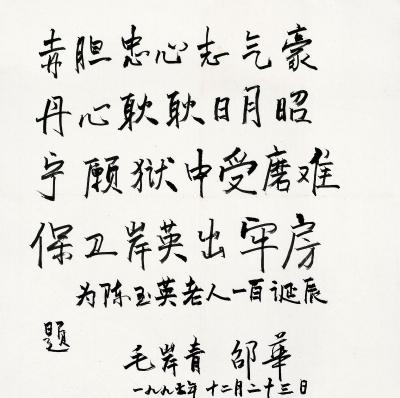 赤胆忠心志气豪
丹心耿耿日月昭
宁愿狱中受磨难
保卫岸英出牢房
为陈玉英老人一百诞辰
题
毛岸青 邵華
一九九年 十二月二十三日